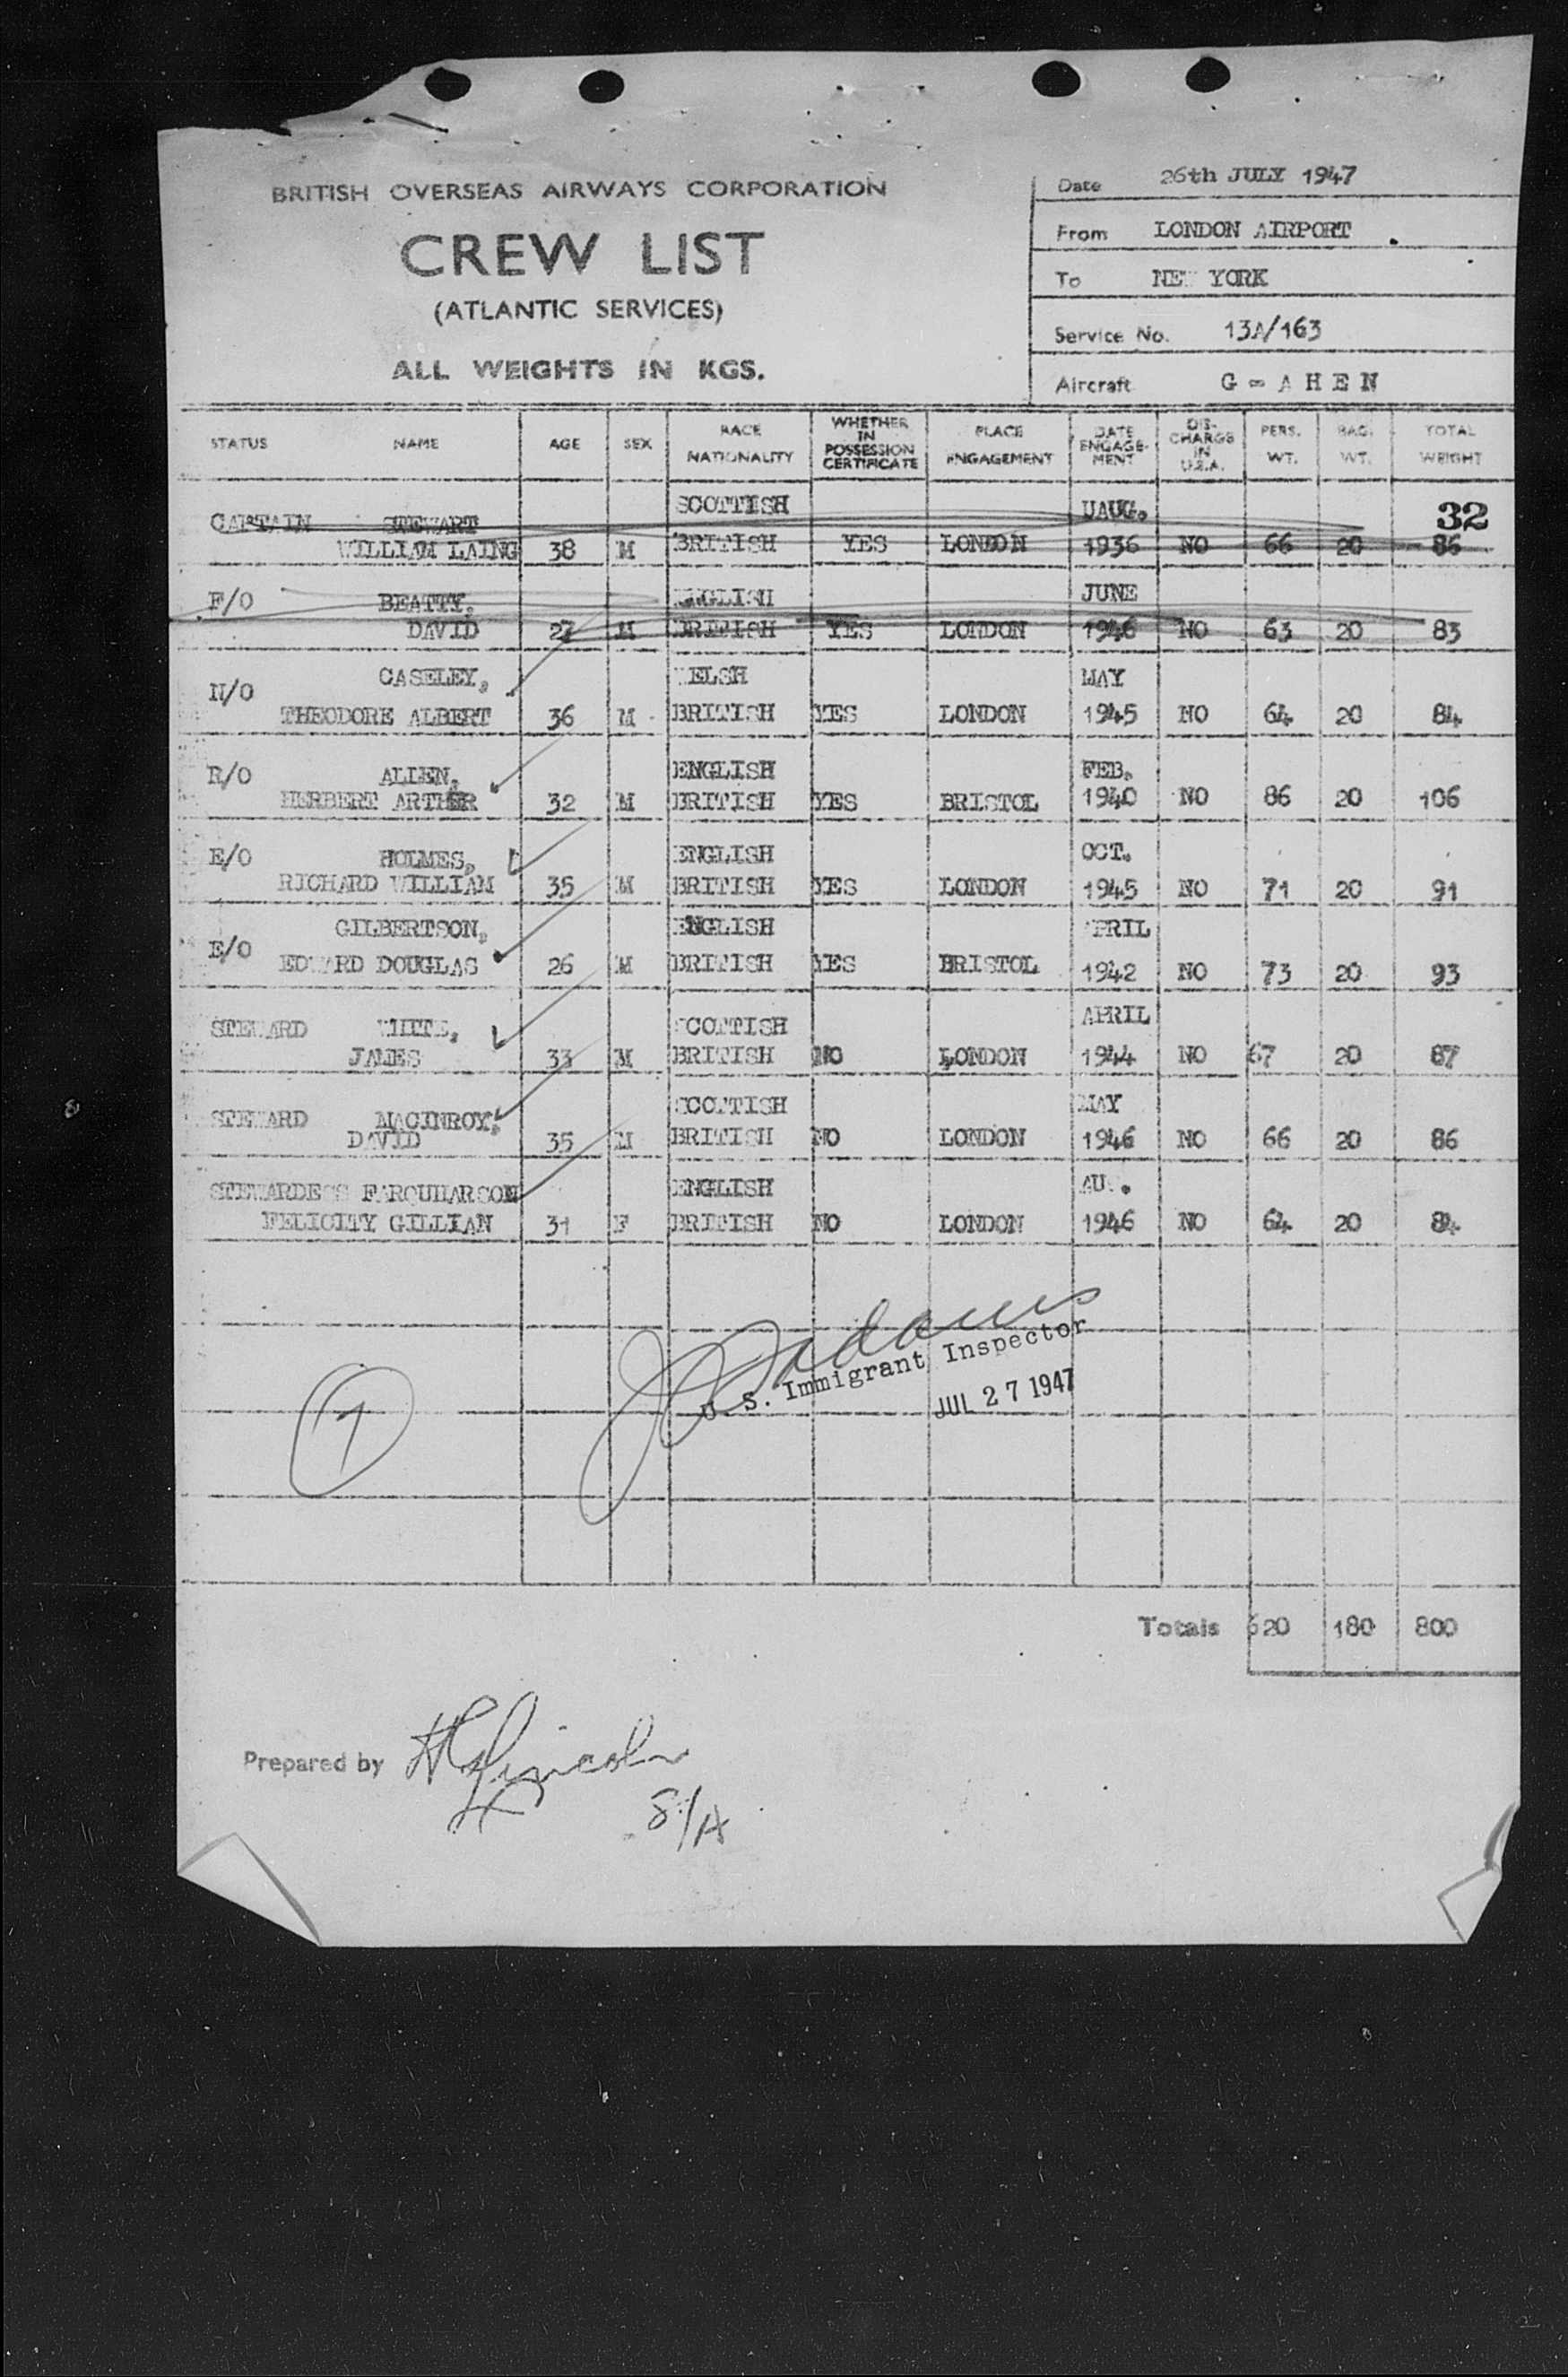 BRITISH OVERSEAS AIRWAYS CORPORATION
CREW LIST
(ATLANTIC SERVICES)
ALL WEIGHTS IN KGS.
Date 26th JULY 1947
From LONDON AIRPORT
To NEW YORK
Service No. 13A/163
Aircraft G - A H E N
STATUS NAME AGE SEX RACE NATIONALITY WHETHER IN POSSESSION CERTIFICATE PLACE ENGAGEMENT DATE ENGAGE-MENT DIS-CHARGE IN U.S.A. PERS. WT. BAG. WT. TOTAL WEIGHT
32
CAPTAIN STEWART SCOTTISH UAUG.
WILLIAM LAING 38 M BRITISH YES LONDON 1936 NO 66 20 86
F/O BEATTY, ENGLISH JUNE
DAVID 27 M BRITISH YES LONDON 1946 NO 63 20 83
N/O CASELEY, WELSH MAY
THEODORE ALBERT 36 M BRITISH YES LONDON 1945 NO 64 20 84
R/O ALLEN, ENGLISH FEB.
HERBERT ARTHER 32 M BRITISH YES BRISTOL 1940 NO 86 20 106
E/O HOLMES, ENGLISH OCT.
RICHARD WILLIAM 35 M BRITISH YES LONDON 1945 NO 71 20 91
GILBERTSON, ENGLISH APRIL
E/O EDWARD DOUGLAS 26 M BRITISH YES BRISTOL 1942 NO 73 20 93
STEWARD WHITE, SCOTTISH APRIL
JAMES 33 M BRITISH NO LONDON 1944 NO 67 20 87
STEWARD MACINROY, SCOTTISH MAY
DAVID 35 M BRITISH NO LONDON 1946 NO 66 20 86
STEWARDESS FARQUHARSON ENGLISH AUG.
FELICITY GILLIAN 31 F BRITISH NO LONDON 1946 NO 64 20 84
Adams
U. S. Immigrant Inspector
JUL 27 1947
7
Totals 620 180 800
Prepared by Lincoln
S/A